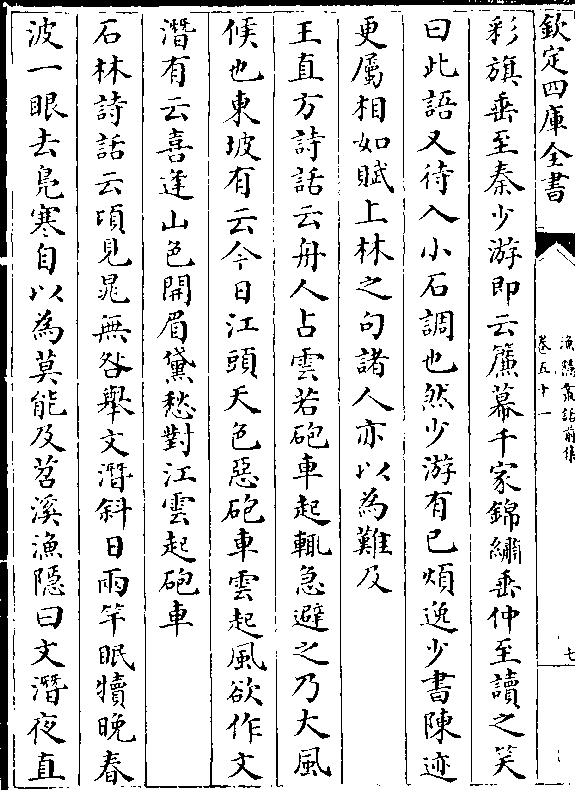 欽定四庫全書
漁隱叢話前集
卷五十一
七
彩旗垂至秦少游即云簾幕千家錦繡垂仲至讀之笑
曰此語又待入小石調也然少游有已煩逸少書陳迹
更屬相如賦上林之句諸人亦以為難及
王直方詩話云舟人占雲若砲車起輒急避之乃大風
候也東坡有云今日江頭天色惡砲車雲起風欲作文
潛有云喜逢山色開眉黛愁對江雲起砲車
石林詩話云頃見晁無咎舉文潛斜日兩竿眠犢晚春
波一眼去鳧寒自以為莫能及苕溪漁隱曰文潛夜直